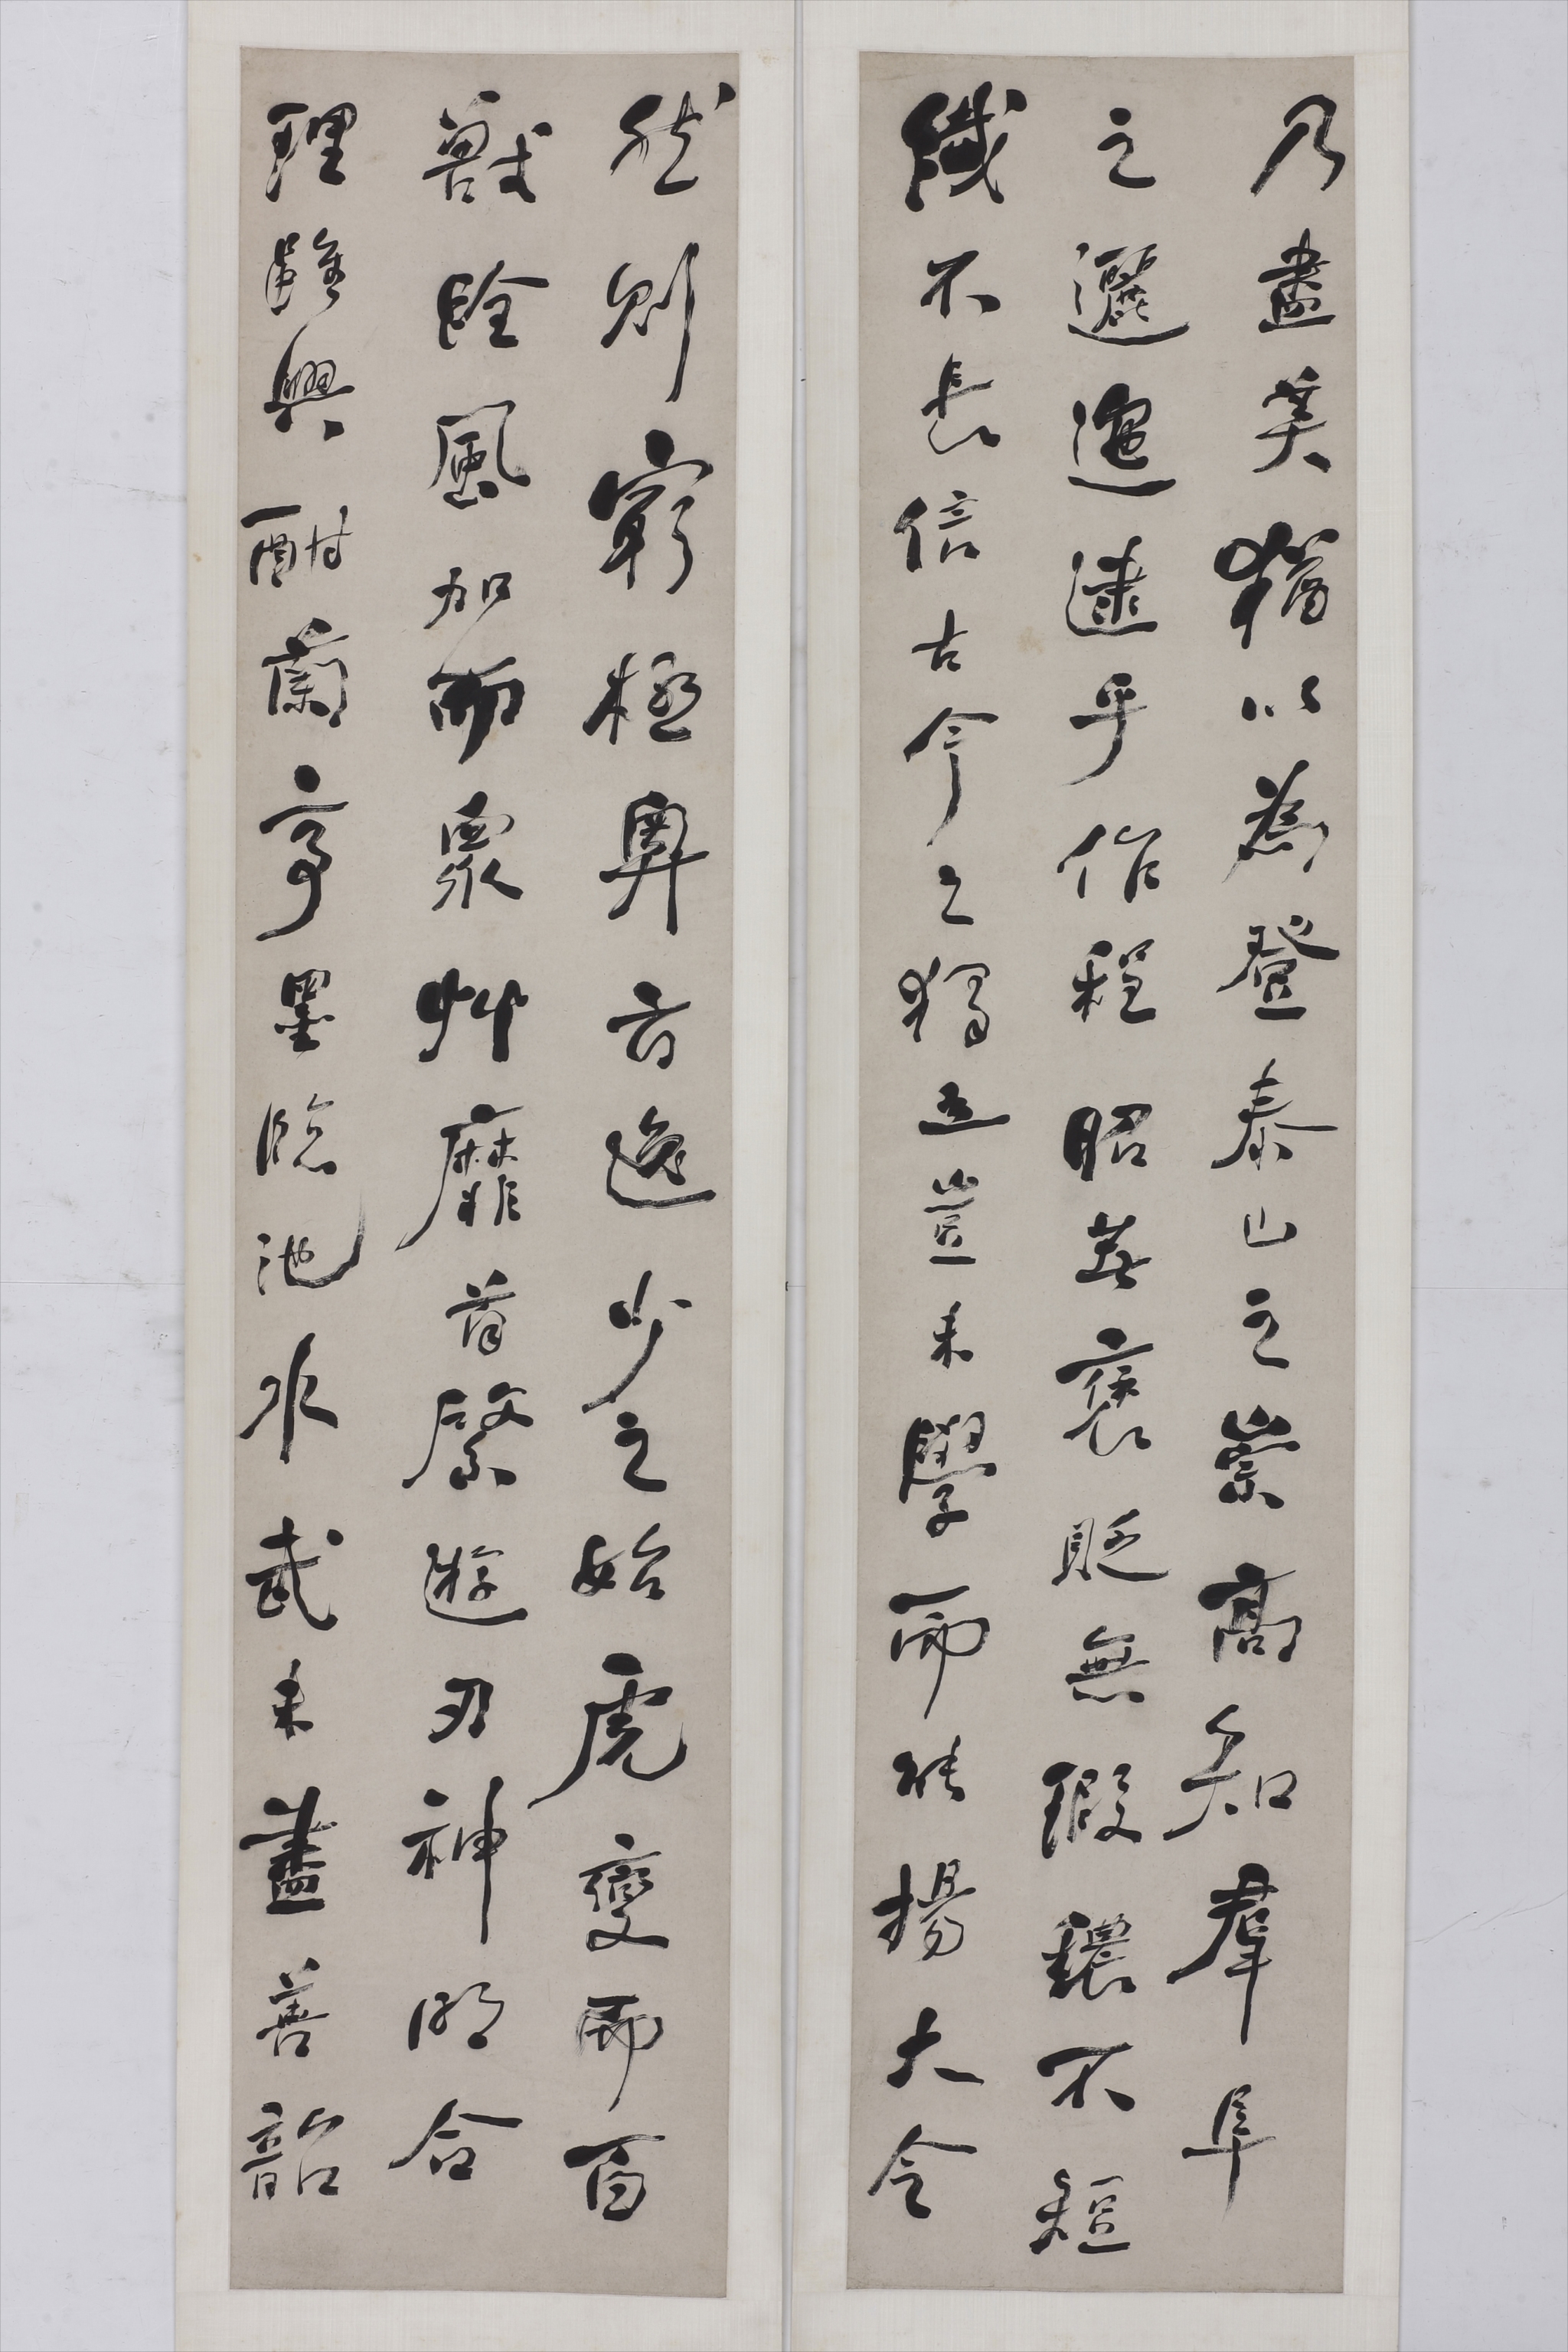 然則窮極奧旨逸少之始虎變而百
獸跧風加而衆艸靡肯綮遊刃神明合
理雖興酣蘭亭墨臨池水武未盡善韶
乃盡美猶以為登泰山之崇高知羣阜
之邐迤逮乎作程昭著褒貶無瑕穠不短
纖不長信古今之獨立豈未學而能揚大令